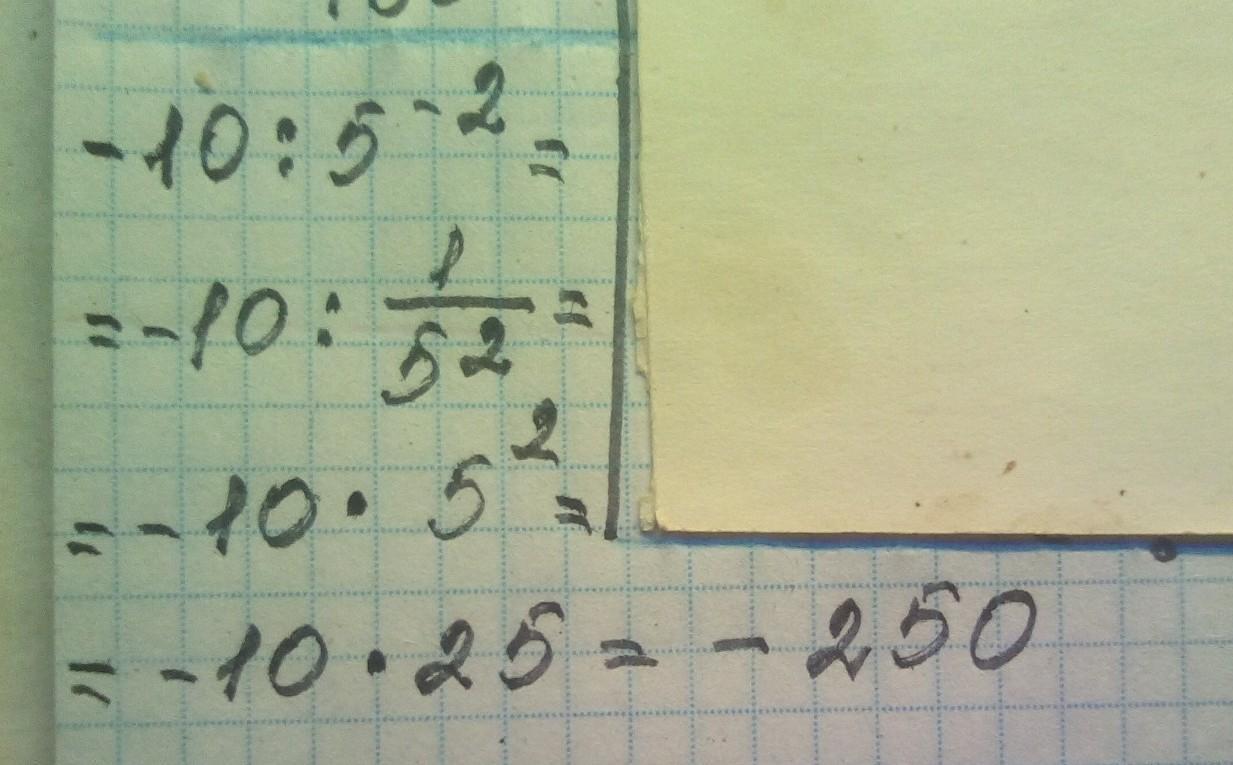 -10:5⁻²=
=-10:1/5²=
=-10·5²=
=-10·25=-250